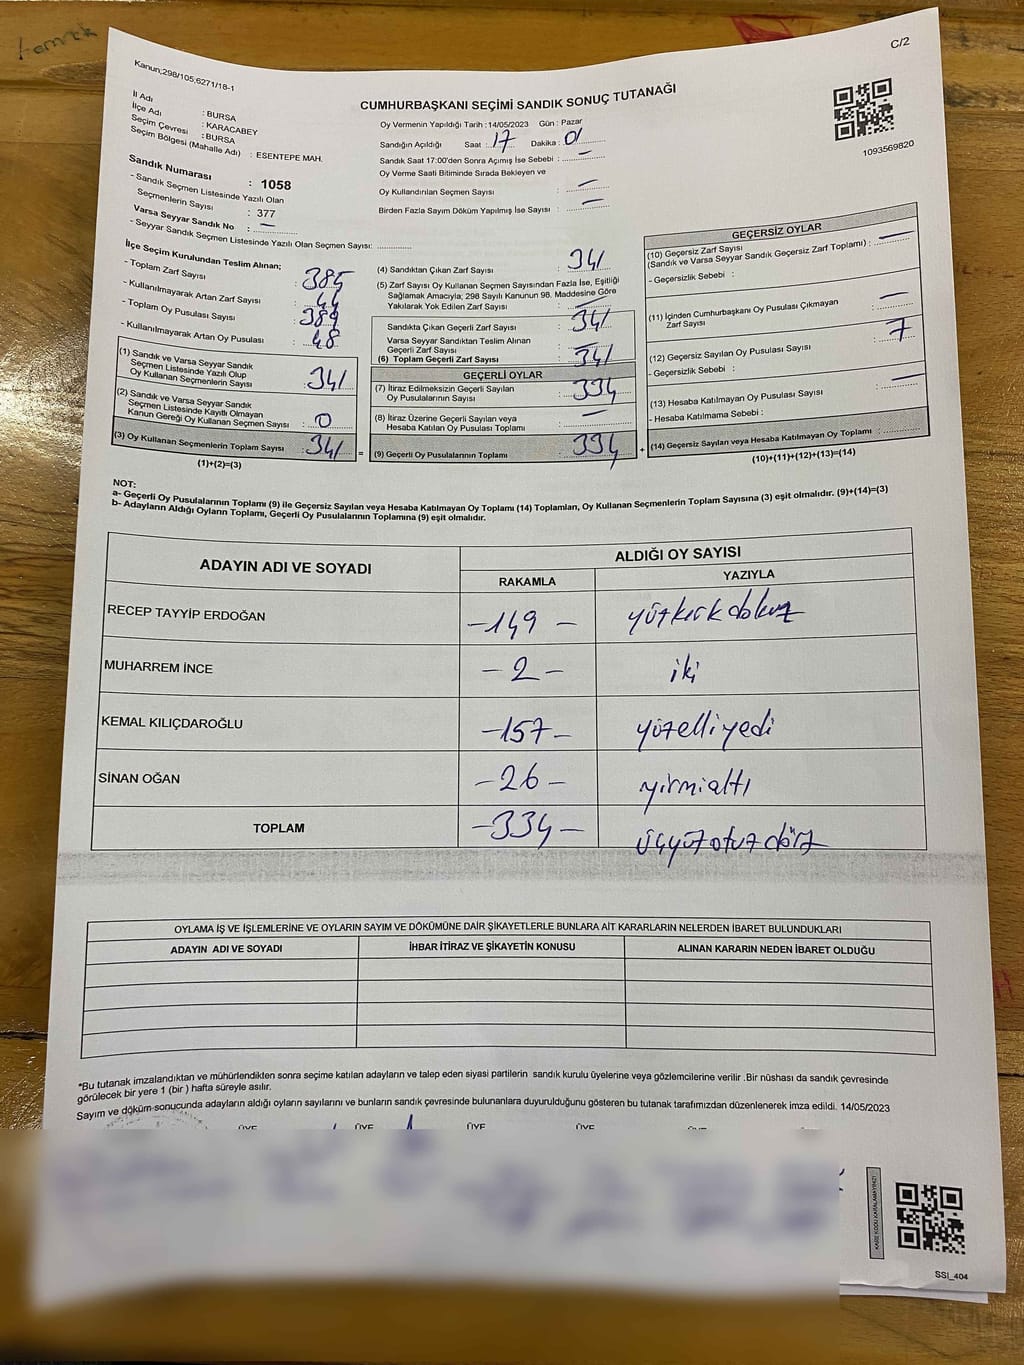 C/2
Kanun;298/105,6271/18-1
CUMHURBAŞKANI SEÇİMİ SANDIK SONUÇ TUTANAĞI
1093569820
İl Adı : BURSA
İlçe Adı : KARACABEY
Seçim Çevresi : BURSA
Seçim Bölgesi (Mahalle Adı) : ESENTEPE MAH.
Sandık Numarası : 1058
- Sandık Seçmen Listesinde Yazılı Olan
Seçmenlerin Sayısı : 377
Varsa Seyyar Sandık No : —
- Seyyar Sandık Seçmen Listesinde Yazılı Olan Seçmen Sayısı: ............
Oy Vermenin Yapıldığı Tarih :14/05/2023 Gün : Pazar
Sandığın Açıldığı Saat : 17 Dakika : 01
Sandık Saat 17:00'den Sonra Açımış İse Sebebi : —
Oy Verme Saati Bitiminde Sırada Bekleyen ve
Oy Kullandırılan Seçmen Sayısı : —
Birden Fazla Sayım Döküm Yapılmış İse Sayısı : —
İlçe Seçim Kurulundan Teslim Alınan;
- Toplam Zarf Sayısı : 385
- Kullanılmayarak Artan Zarf Sayısı : 44
- Toplam Oy Pusulası Sayısı : 389
- Kullanılmayarak Artan Oy Pusulası : 48
(1) Sandık ve Varsa Seyyar Sandık
Seçmen Listesinde Yazılı Olup
Oy Kullanan Seçmenlerin Sayısı : 341
(2) Sandık ve Varsa Seyyar Sandık
Seçmen Listesinde Kayıtlı Olmayan
Kanun Gereği Oy Kullanan Seçmen Sayısı : 0
(3) Oy Kullanan Seçmenlerin Toplam Sayısı : 341 =
(1)+(2)=(3)
(4) Sandıktan Çıkan Zarf Sayısı : 341
(5) Zarf Sayısı Oy Kullanan Seçmen Sayısından Fazla İse, Eşitliği
Sağlamak Amacıyla; 298 Sayılı Kanunun 98. Maddesine Göre
Yakılarak Yok Edilen Zarf Sayısı : —
Sandıkta Çıkan Geçerli Zarf Sayısı : 341
Varsa Seyyar Sandıktan Teslim Alınan
Geçerli Zarf Sayısı : —
(6) Toplam Geçerli Zarf Sayısı : 341
GEÇERLİ OYLAR
(7) İtiraz Edilmeksizin Geçerli Sayılan
Oy Pusulalarının Sayısı : 334
(8) İtiraz Üzerine Geçerli Sayılan veya
Hesaba Katılan Oy Pusulası Toplamı : —
(9) Geçerli Oy Pusulalarının Toplamı : 334 +
GEÇERSİZ OYLAR
(10) Geçersiz Zarf Sayısı
(Sandık ve Varsa Seyyar Sandık Geçersiz Zarf Toplamı) : —
- Geçersizlik Sebebi :
(11) İçinden Cumhurbaşkanı Oy Pusulası Çıkmayan
Zarf Sayısı : —
(12) Geçersiz Sayılan Oy Pusulası Sayısı : 7
- Geçersizlik Sebebi :
(13) Hesaba Katılmayan Oy Pusulası Sayısı : —
- Hesaba Katılmama Sebebi :
(14) Geçersiz Sayılan veya Hesaba Katılmayan Oy Toplamı : ............
(10)+(11)+(12)+(13)=(14)
NOT:
a- Geçerli Oy Pusulalarının Toplamı (9) ile Geçersiz Sayılan veya Hesaba Katılmayan Oy Toplamı (14) Toplamları, Oy Kullanan Seçmenlerin Toplam Sayısına (3) eşit olmalıdır. (9)+(14)=(3)
b- Adayların Aldığı Oyların Toplamı, Geçerli Oy Pusulalarının Toplamına (9) eşit olmalıdır.
ADAYIN ADI VE SOYADI ALDIĞI OY SAYISI
RAKAMLA YAZIYLA
RECEP TAYYİP ERDOĞAN -149- yüzkırkdokuz
MUHARREM İNCE -2- iki
KEMAL KILIÇDAROĞLU -157- yüzelliyedi
SİNAN OĞAN -26- yirmialtı
TOPLAM -334- üçyüzotuzdört
OYLAMA İŞ VE İŞLEMLERİNE VE OYLARIN SAYIM VE DÖKÜMÜNE DAİR ŞİKAYETLERLE BUNLARA AİT KARARLARIN NELERDEN İBARET BULUNDUKLARI
ADAYIN ADI VE SOYADI İHBAR İTİRAZ VE ŞİKAYETİN KONUSU ALINAN KARARIN NEDEN İBARET OLDUĞU
*Bu tutanak imzalandıktan ve mühürlendikten sonra seçime katılan adayların ve talep eden siyasi partilerin sandık kurulu üyelerine veya gözlemcilerine verilir .Bir nüshası da sandık çevresinde
görülecek bir yere 1 (bir ) hafta süreyle asılır.
Sayım ve döküm sonucunda adayların aldığı oyların sayılarını ve bunların sandık çevresinde bulunanlara duyurulduğunu gösteren bu tutanak tarafımızdan düzenlenerek imza edildi. 14/05/2023
ÜYE ÜYE ÜYE ÜYE
KARE KODU KARALAMAYINIZ!
SSİ_404